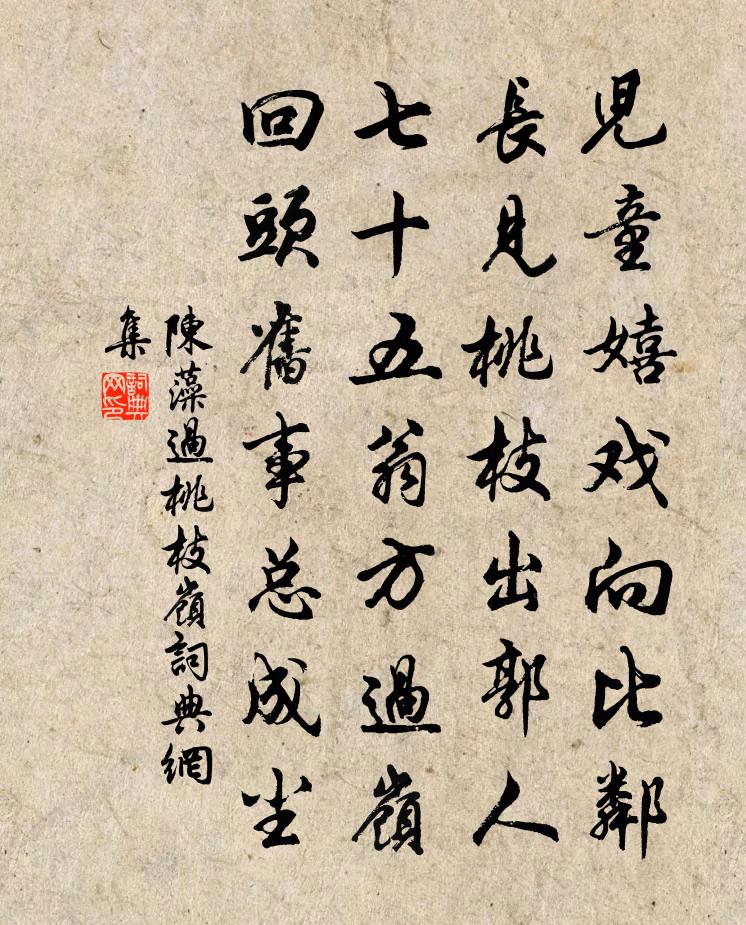 児童嬉戏向比鄰
長見桃枝出郭人
七十五翁方過嶺
回頭舊事总成尘
陳藻過桃枝嶺詞典網
集
詞典网印